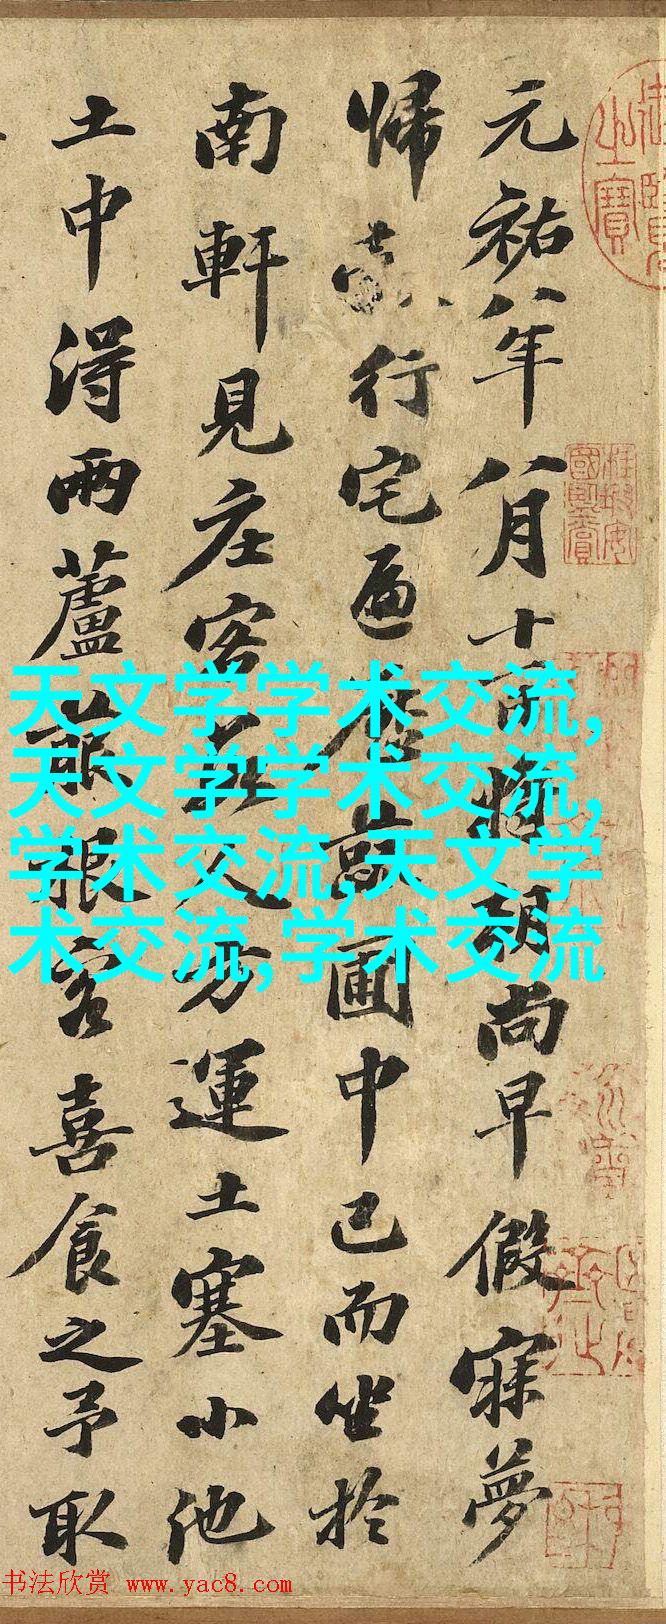 元祐八年八月十一日將朝尚早假寐夢
歸行宅遍歷蔬圃中已而坐於
南軒見庄客數人方運土塞小池
土中得兩蘆菔根客喜食之予取
天文学学术交流,
天文学学术交流,
学术交流,天文学
术交流,学术交流
书法欣赏 www.yac8.com